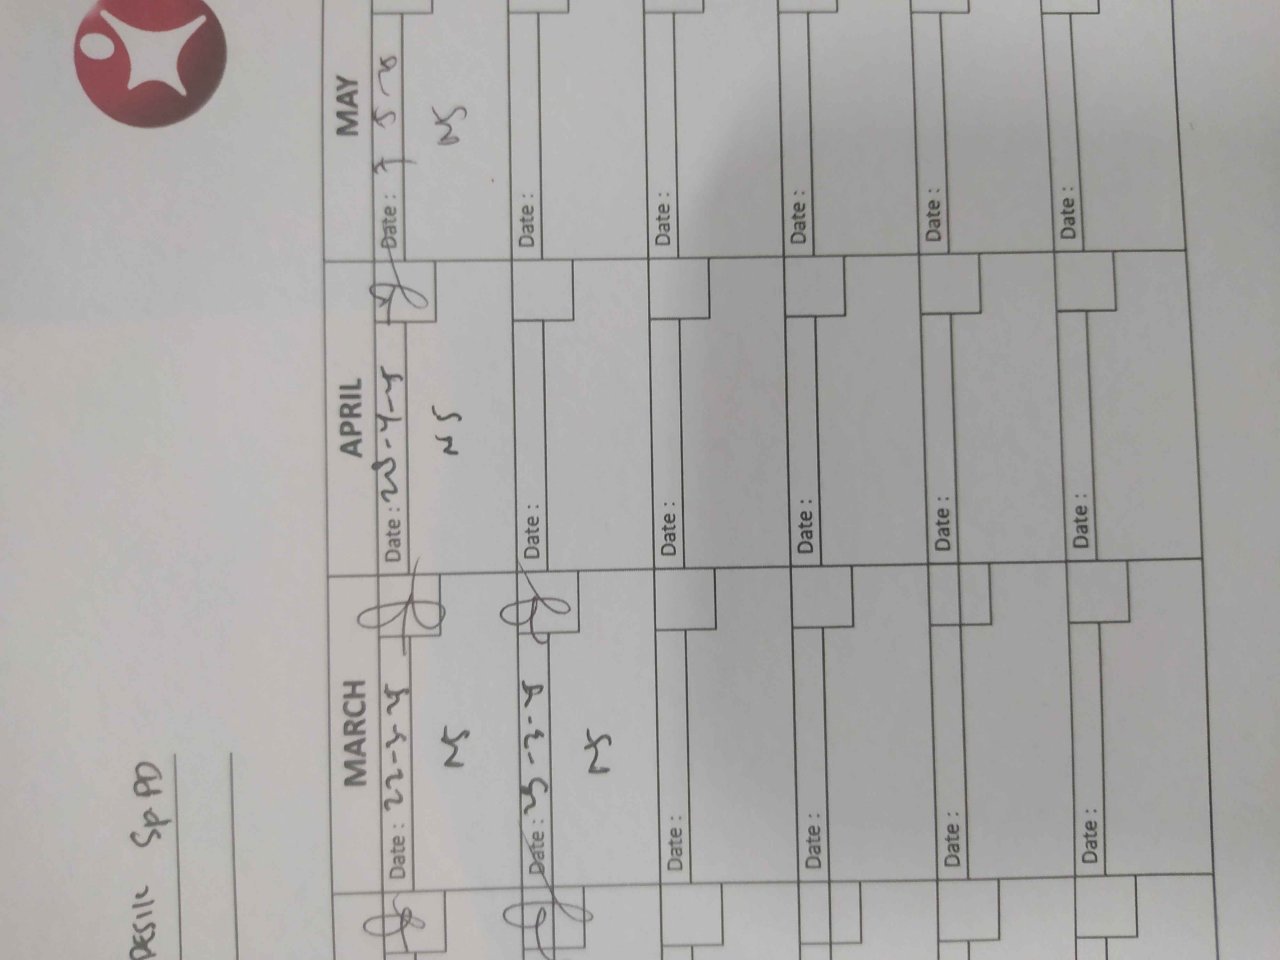 DESIK Sp PD
MARCH APRIL MAY
Date: 22-3-25 Date: 28-4-25 Date: 7 5 25
NS NS NS
Date: 25-3-25 Date: Date:
NS
Date: Date: Date:
Date: Date: Date:
Date: Date: Date:
Date: Date: Date: